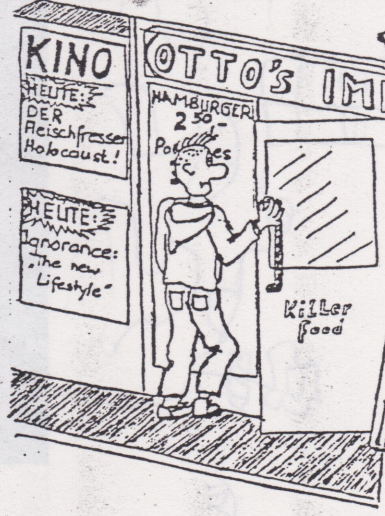 KINO
HEUTE:
DER
Fleischfresser
Holocaust!
HEUTE:
Ignorance:
"The new
Lifestyle"
OTTO's IM
HAMBURGER
2 50-
Killer
food